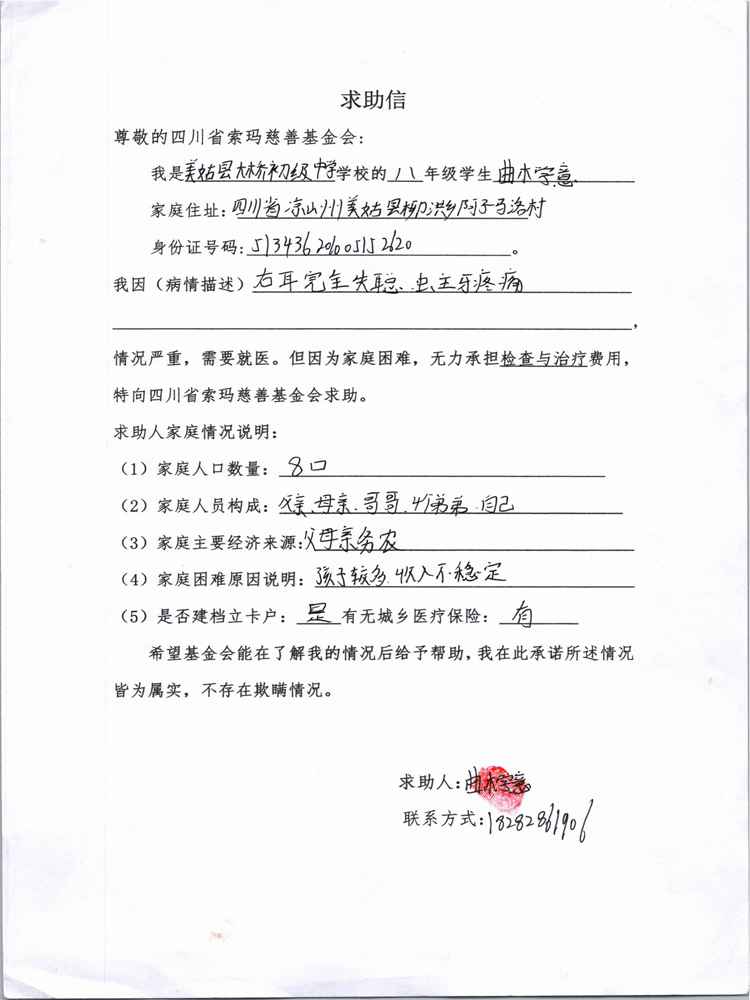 求助信
尊敬的四川省索玛慈善基金会：
我是美姑县大桥初级中学学校的 八 年级学生 曲木字意
家庭住址：四川省凉山州美姑县柳洪乡阿子马洛村
身份证号码：513436200605152620。
我因（病情描述）右耳完全失聪、虫主牙疼痛
，
情况严重，需要就医。但因为家庭困难，无力承担检查与治疗费用，
特向四川省索玛慈善基金会求助。
求助人家庭情况说明：
（1）家庭人口数量： 8口
（2）家庭人员构成：父亲、母亲、哥哥、4个弟弟、自己
（3）家庭主要经济来源：父母亲务农
（4）家庭困难原因说明：孩子较多，收入不稳定
（5）是否建档立卡户： 是 有无城乡医疗保险： 有
希望基金会能在了解我的情况后给予帮助，我在此承诺所述情况
皆为属实，不存在欺瞒情况。
求助人：曲木字意
联系方式：18282861906